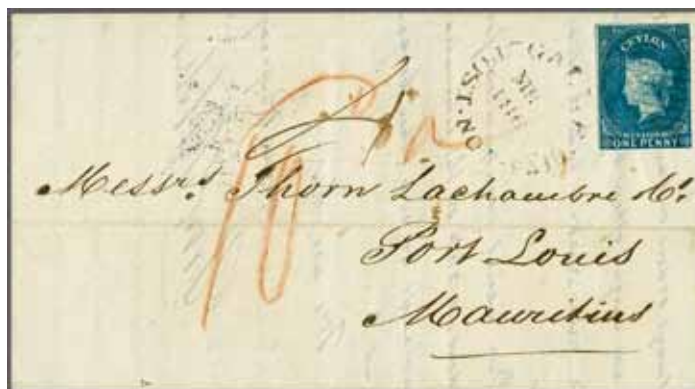 CEYLON
POSTAGE
ONE PENNY
Messrs. Thorn Lachambre &Co.
Port Louis
Mauritius